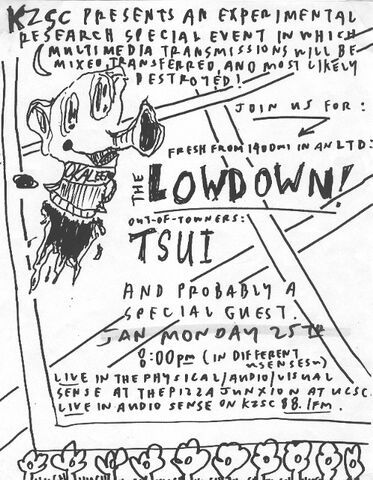 KZSC PRESENTS AN EXPERIMENTAL
RESEARCH SPECIAL EVENT IN WHICH
MULTIMEDIA TRANSMISSIONS WILL BE
MIXED, TRANSFERRED, AND MOST LIKELY
DESTROYED!
JOIN US FOR:
FRESH FROM 1400MI IN AN LTD:
THE LOWDOWN!
OUT-OF-TOWNERS:
TSUI
AND PROBABLY A
SPECIAL GUEST.
JAN MONDAY 25TH
8:00PM (IN DIFFERENT
"SENSES")
LIVE IN THE PHYSICAL/AUDIO/VISUAL
SENSE AT THE PIZZA JUNXION AT UCSC.
LIVE IN AUDIO SENSE ON KZSC 88.1FM.